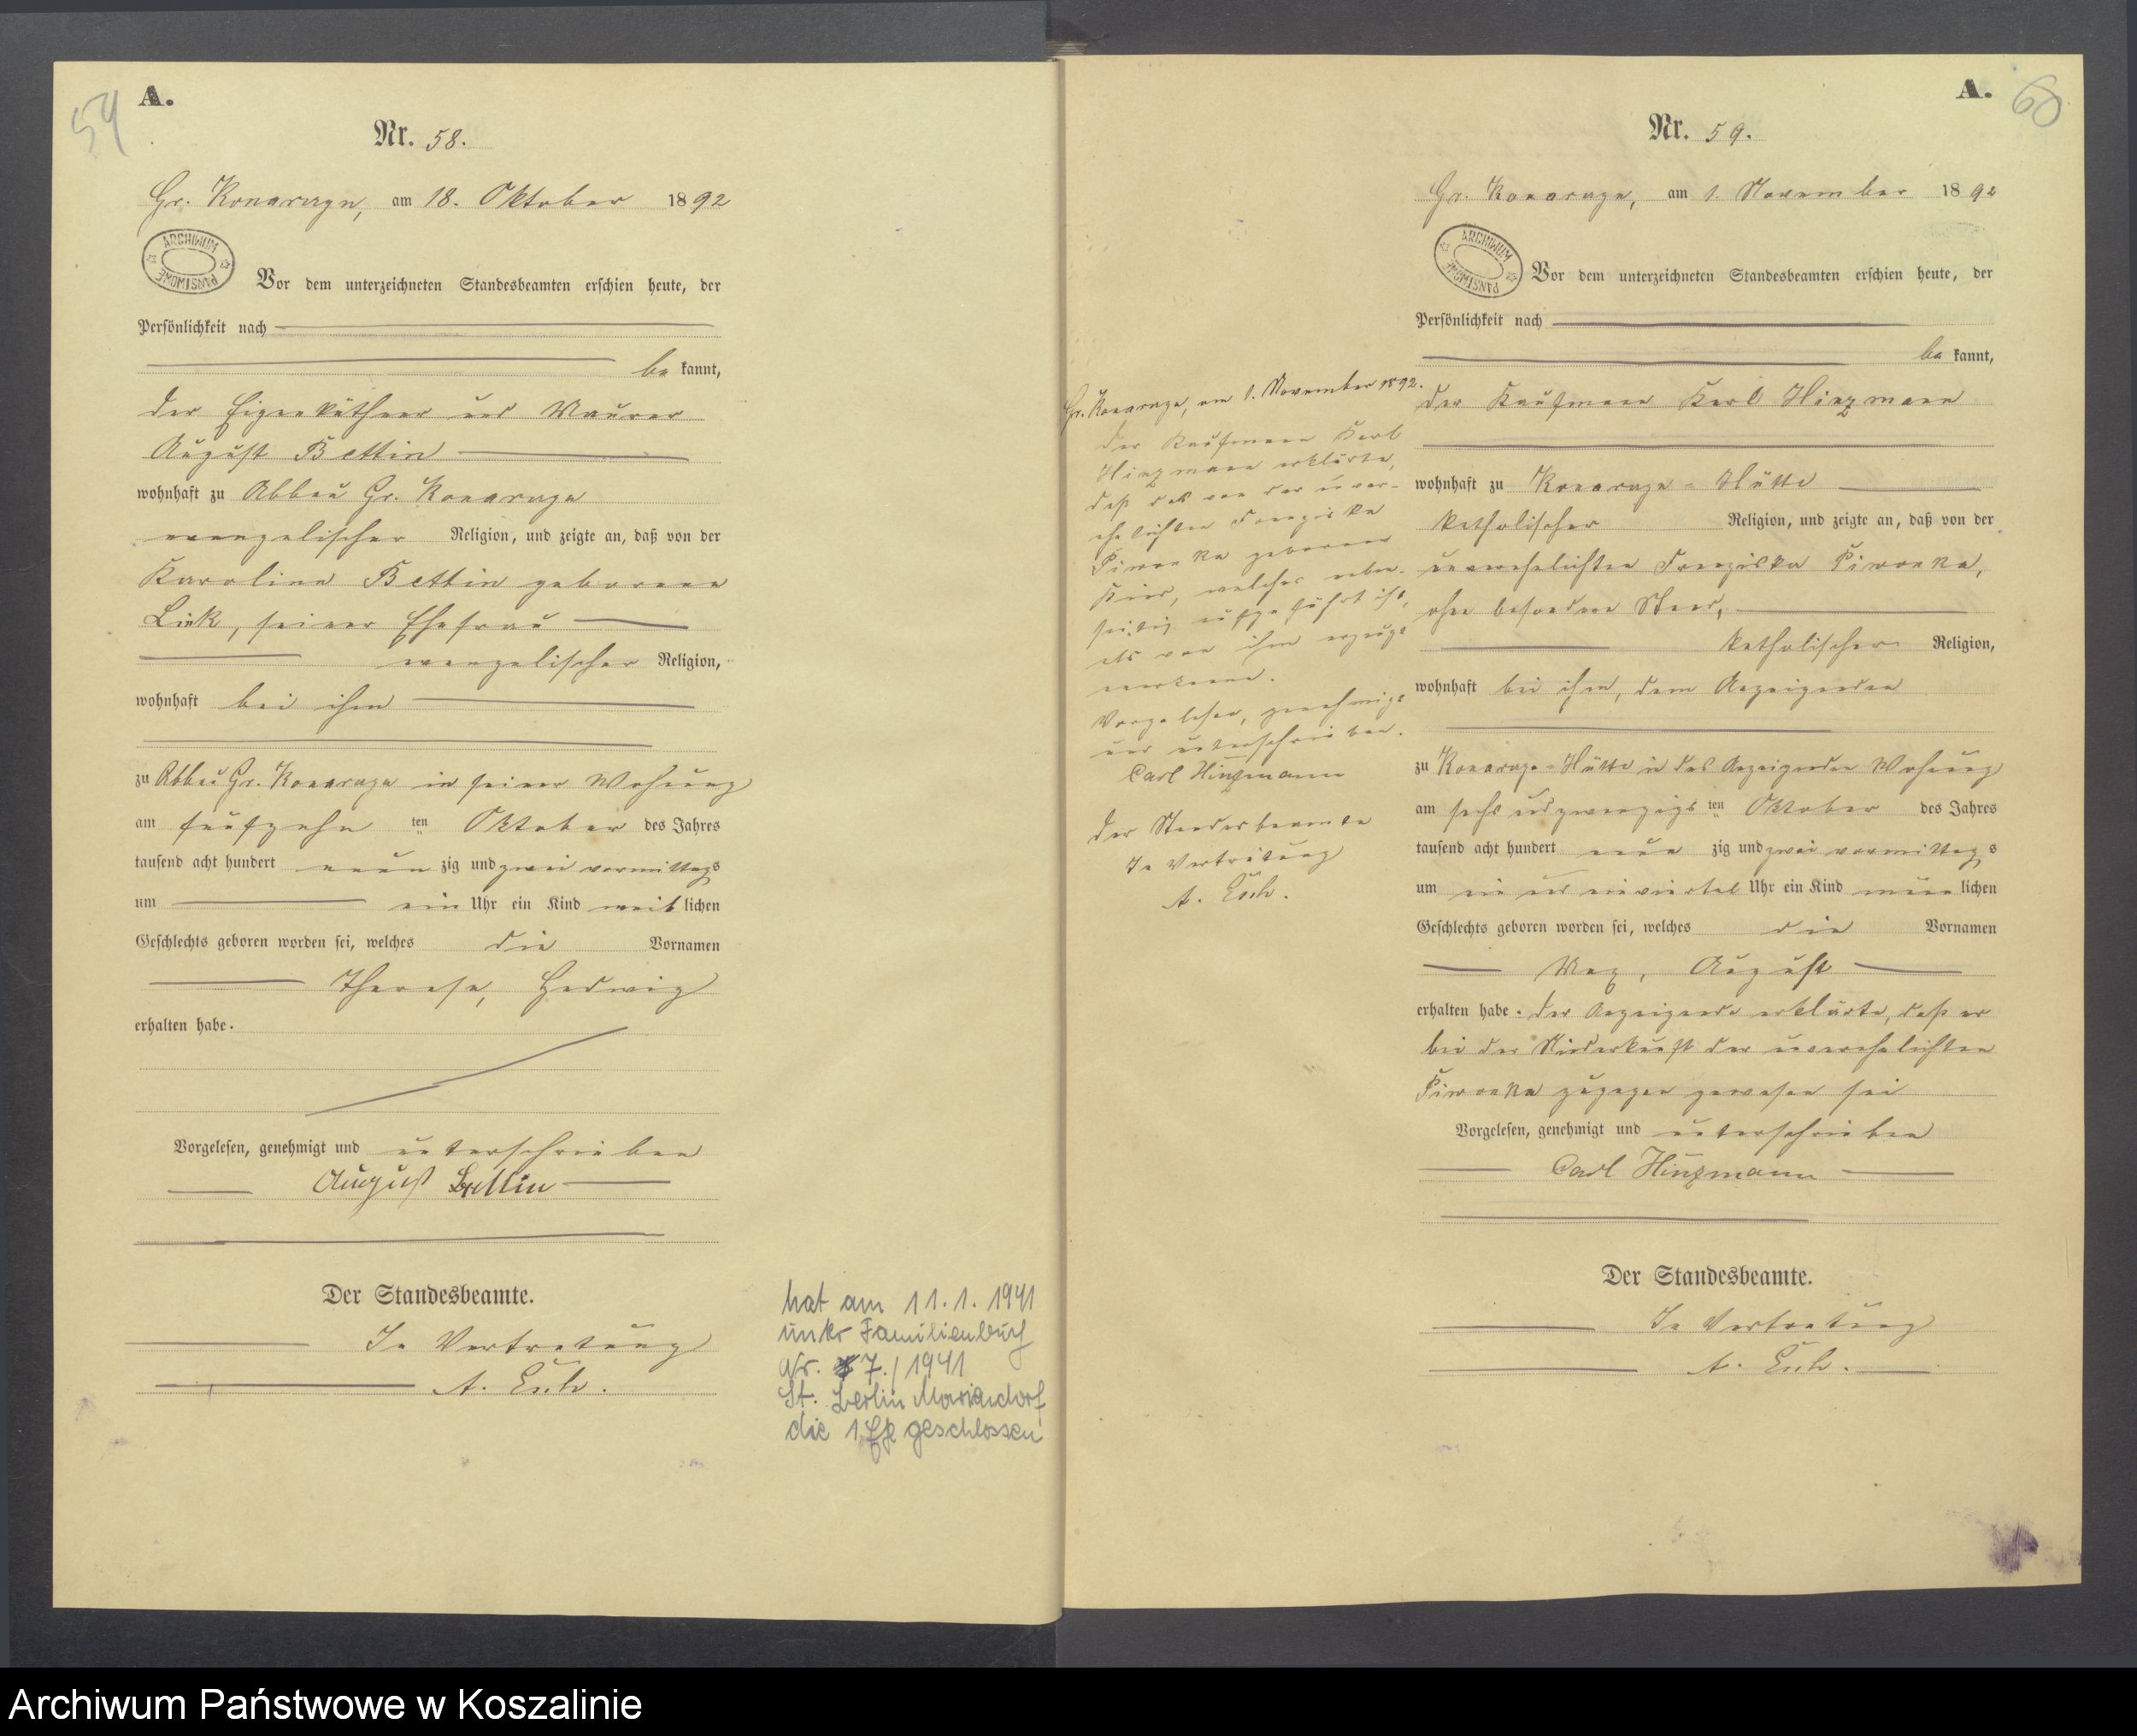 59
A.
Nr. 58.
Gr. Konarzyn, am 18. Oktober 1892
ARCHIWUM PAŃSTWOWE
Vor dem unterzeichneten Standesbeamten erschien heute, der
Persönlichkeit nach
be kannt,
der Eigenkäthner und Maurer
August Bettin
wohnhaft zu Abbau Gr. Konarzyn
evangelischer Religion, und zeigte an, daß von der
Karoline Bettin geborene
Link, seiner Ehefrau
evangelischer Religion,
wohnhaft bei ihm
zu Abbau Gr. Konarzyn in seiner Wohnung
am fünfzehn ten Oktober des Jahres
tausend acht hundert neun zig und zwei vormittags
um ein Uhr ein Kind weib lichen
Geschlechts geboren worden sei, welches die Vornamen
Therese, Hedwig
erhalten habe.
Vorgelesen, genehmigt und unterschrieben
August Bettin
Der Standesbeamte.
In Vertretung
A.
hat am 11.1.1941
unter Familienbuch
Nr. 7./1941
St. Berlin Mariendorf
die 1. Ehe geschlossen
A.
60
Nr. 59.
Gr. Konarzyn, am 1. November 1892
ARCHIWUM PAŃSTWOWE
Vor dem unterzeichneten Standesbeamten erschien heute, der
Persönlichkeit nach
be kannt,
der Kaufmann Karl Hinzmann
wohnhaft zu Konarzyn-Hütte
katholischer Religion, und zeigte an, daß von der
unverehelichten Franziska Piwonka,
ohne besonderen Stand,
katholischer Religion,
wohnhaft bei ihm, dem Anzeigenden
zu Konarzyn-Hütte in des Anzeigenden Wohnung
am sechs und zwanzigs ten Oktober des Jahres
tausend acht hundert neun zig und zwei vormittag s
um ein und ein viertel Uhr ein Kind männ lichen
Geschlechts geboren worden sei, welches die Vornamen
Max, August
erhalten habe. Der Anzeigende erklärte, daß er
bei der Niederkunft der unverehelichten
Piwonka zugegen gewesen sei
Vorgelesen, genehmigt und unterschrieben
Carl Hinzmann
Der Standesbeamte.
In Vertretung
A.
Gr. Konarzyn, am 1. November 1892.
Der Kaufmann Karl
Hinzmann erklärte,
daß das von der unver-
ehelichten Franziska
Piwonka geborene
Kind, welches neben-
seitig aufgeführt ist,
als von ihm erzeugt
anerkenne.
Vorgelesen, genehmigt
und unterschrieben.
Carl Hinzmann
Der Standesbeamte
In Vertretung
A.
Archiwum Państwowe w Koszalinie